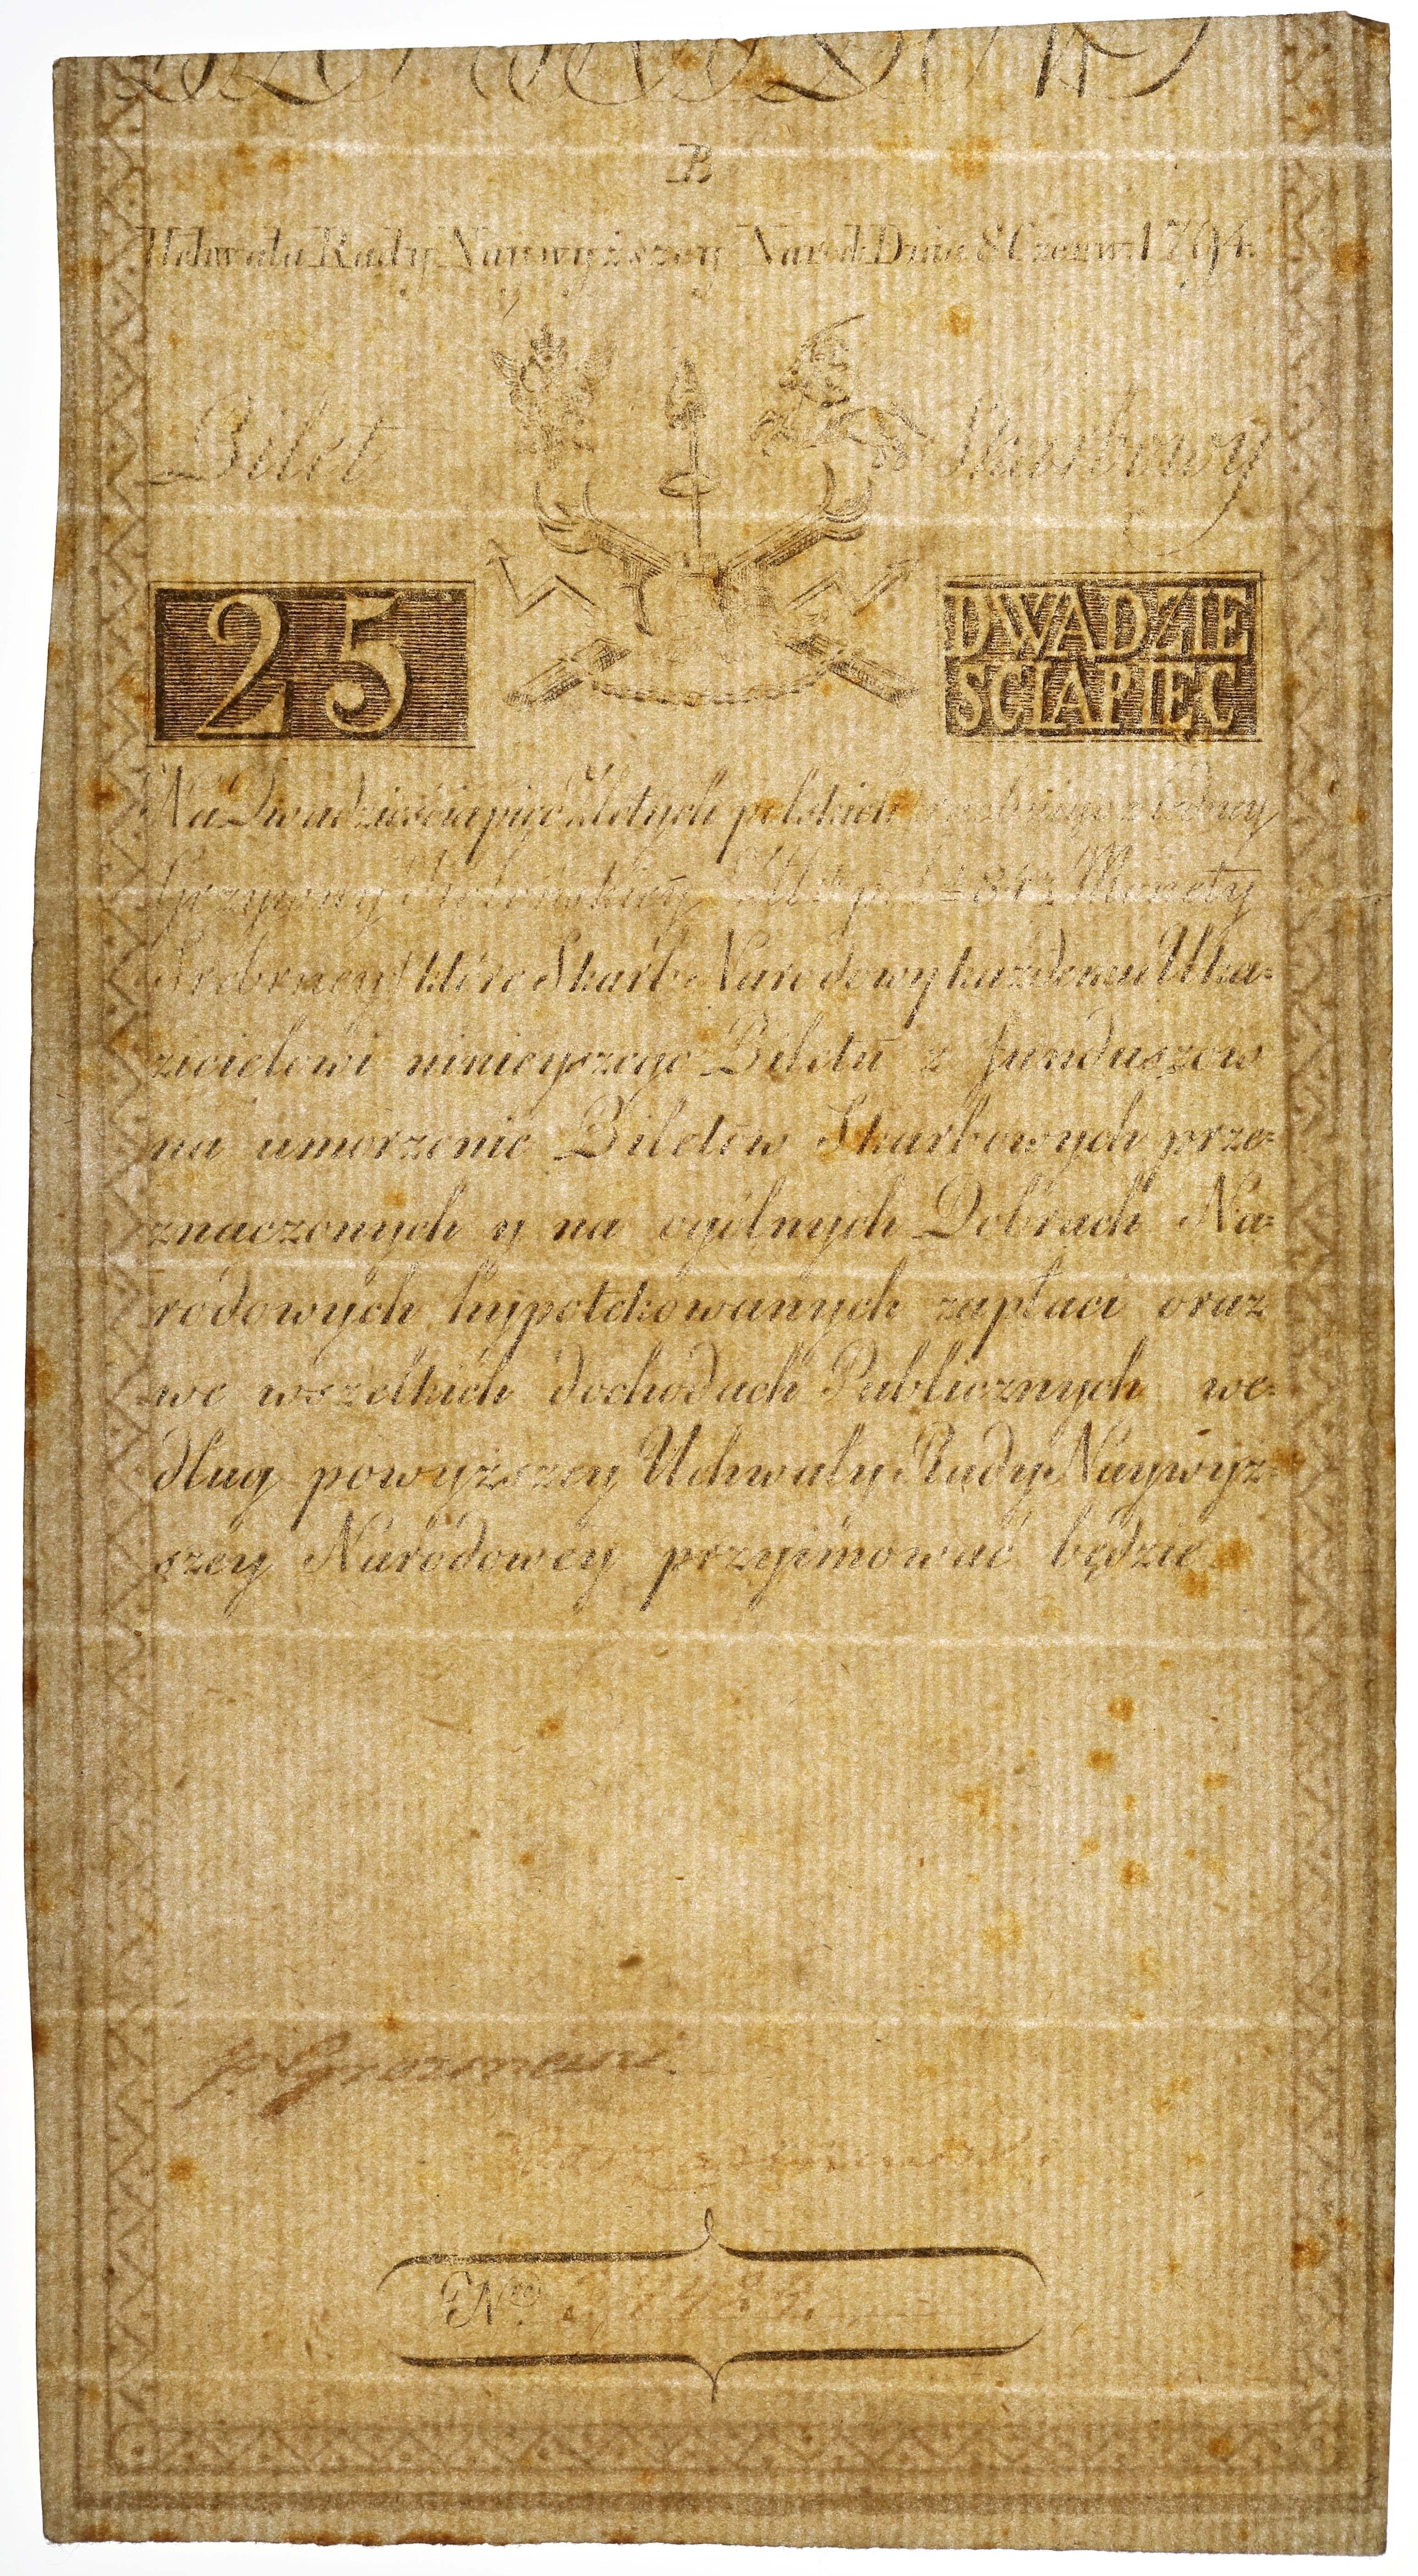 B
Uchwała Rady Naywyższey Narod: Dnia 8 Czerw: 1794.
Bilet Skarbowy
25 DWADZIE
SCIAPIĘC
Na Dwadzieściapięć Złotych polskich z iedney
Grzywny Kolońskiey Złł: pol: 84½ Monety
Srebrney) które Skarb Narodowy każdemu Uka=
zicielowi ninieyszego Biletu z funduszow
na umorzenie Biletów Skarbowych prze=
znaczonych y na ogólnych Dobrach Na=
rodowych hypotekowanych zapłaci oraz
we wszelkich dochodach Publicznych we=
dług powyższey Uchwały Rady Naywyż=
szey Narodowey przyimować będzie
Nro